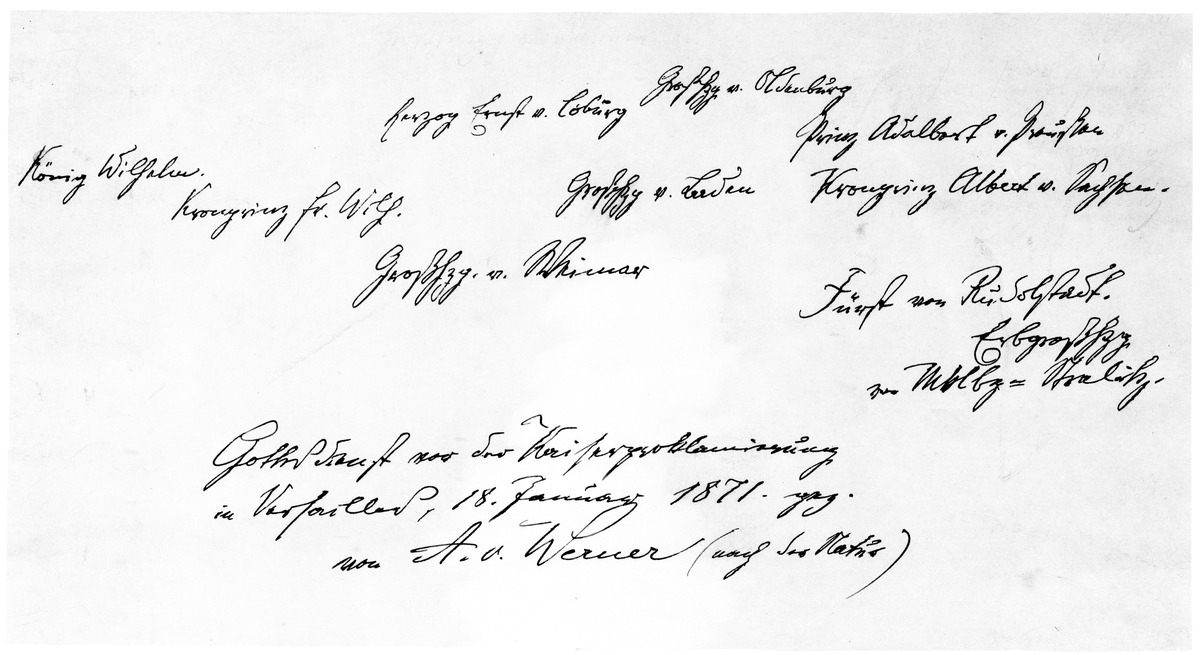 Großhzg v. Oldenburg
Herzog Ernst v. Coburg
Prinz Adalbert v. Preußen
König Wilhelm.
Kronprinz Fr. Wilh.
Großhzg v. Baden
Kronprinz Albert v. Sachsen.
Großhzg. v. Weimar
Fürst von Rudolstadt.
Erbgroßhzg
von Mklbg= Strelitz.
Gottesdienst vor der Kaiserproklamierung
in Versailles, 18. Januar 1871. gez.
von A. v. Werner (nach der Natur)